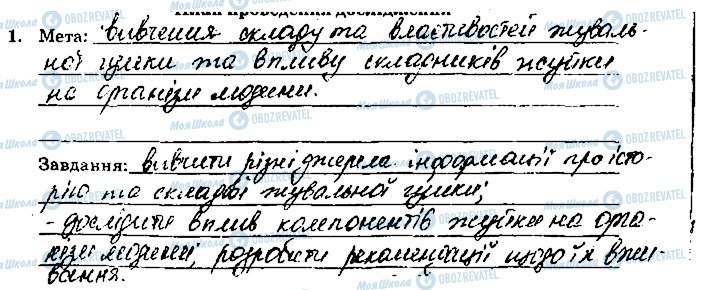 План проведення дослідження
1. Мета: вивчення складу та властивостей жуваль-
ної гумки та впливу складників жуйки
на організм людини.
Завдання: вивчити різні джерела інформації про істо-
рію та склад жувальної гумки;
- дослідити вплив компонентів жуйки на орга-
нізм людини; розробити рекомендації щодо їх вжи-
вання.